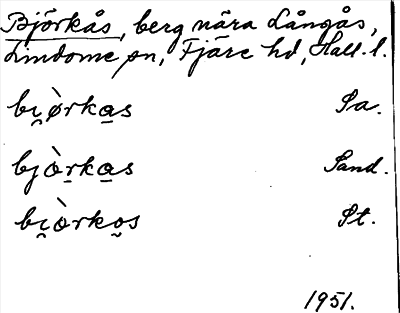 Björkås, berg nära Långås,
Lindome sn, Fjäre hd, Hall. l.
bi̯ø̀rka̠s Sa.
bjò̠rka̠s Sand.
bi̯òrko̯s St.
1951.